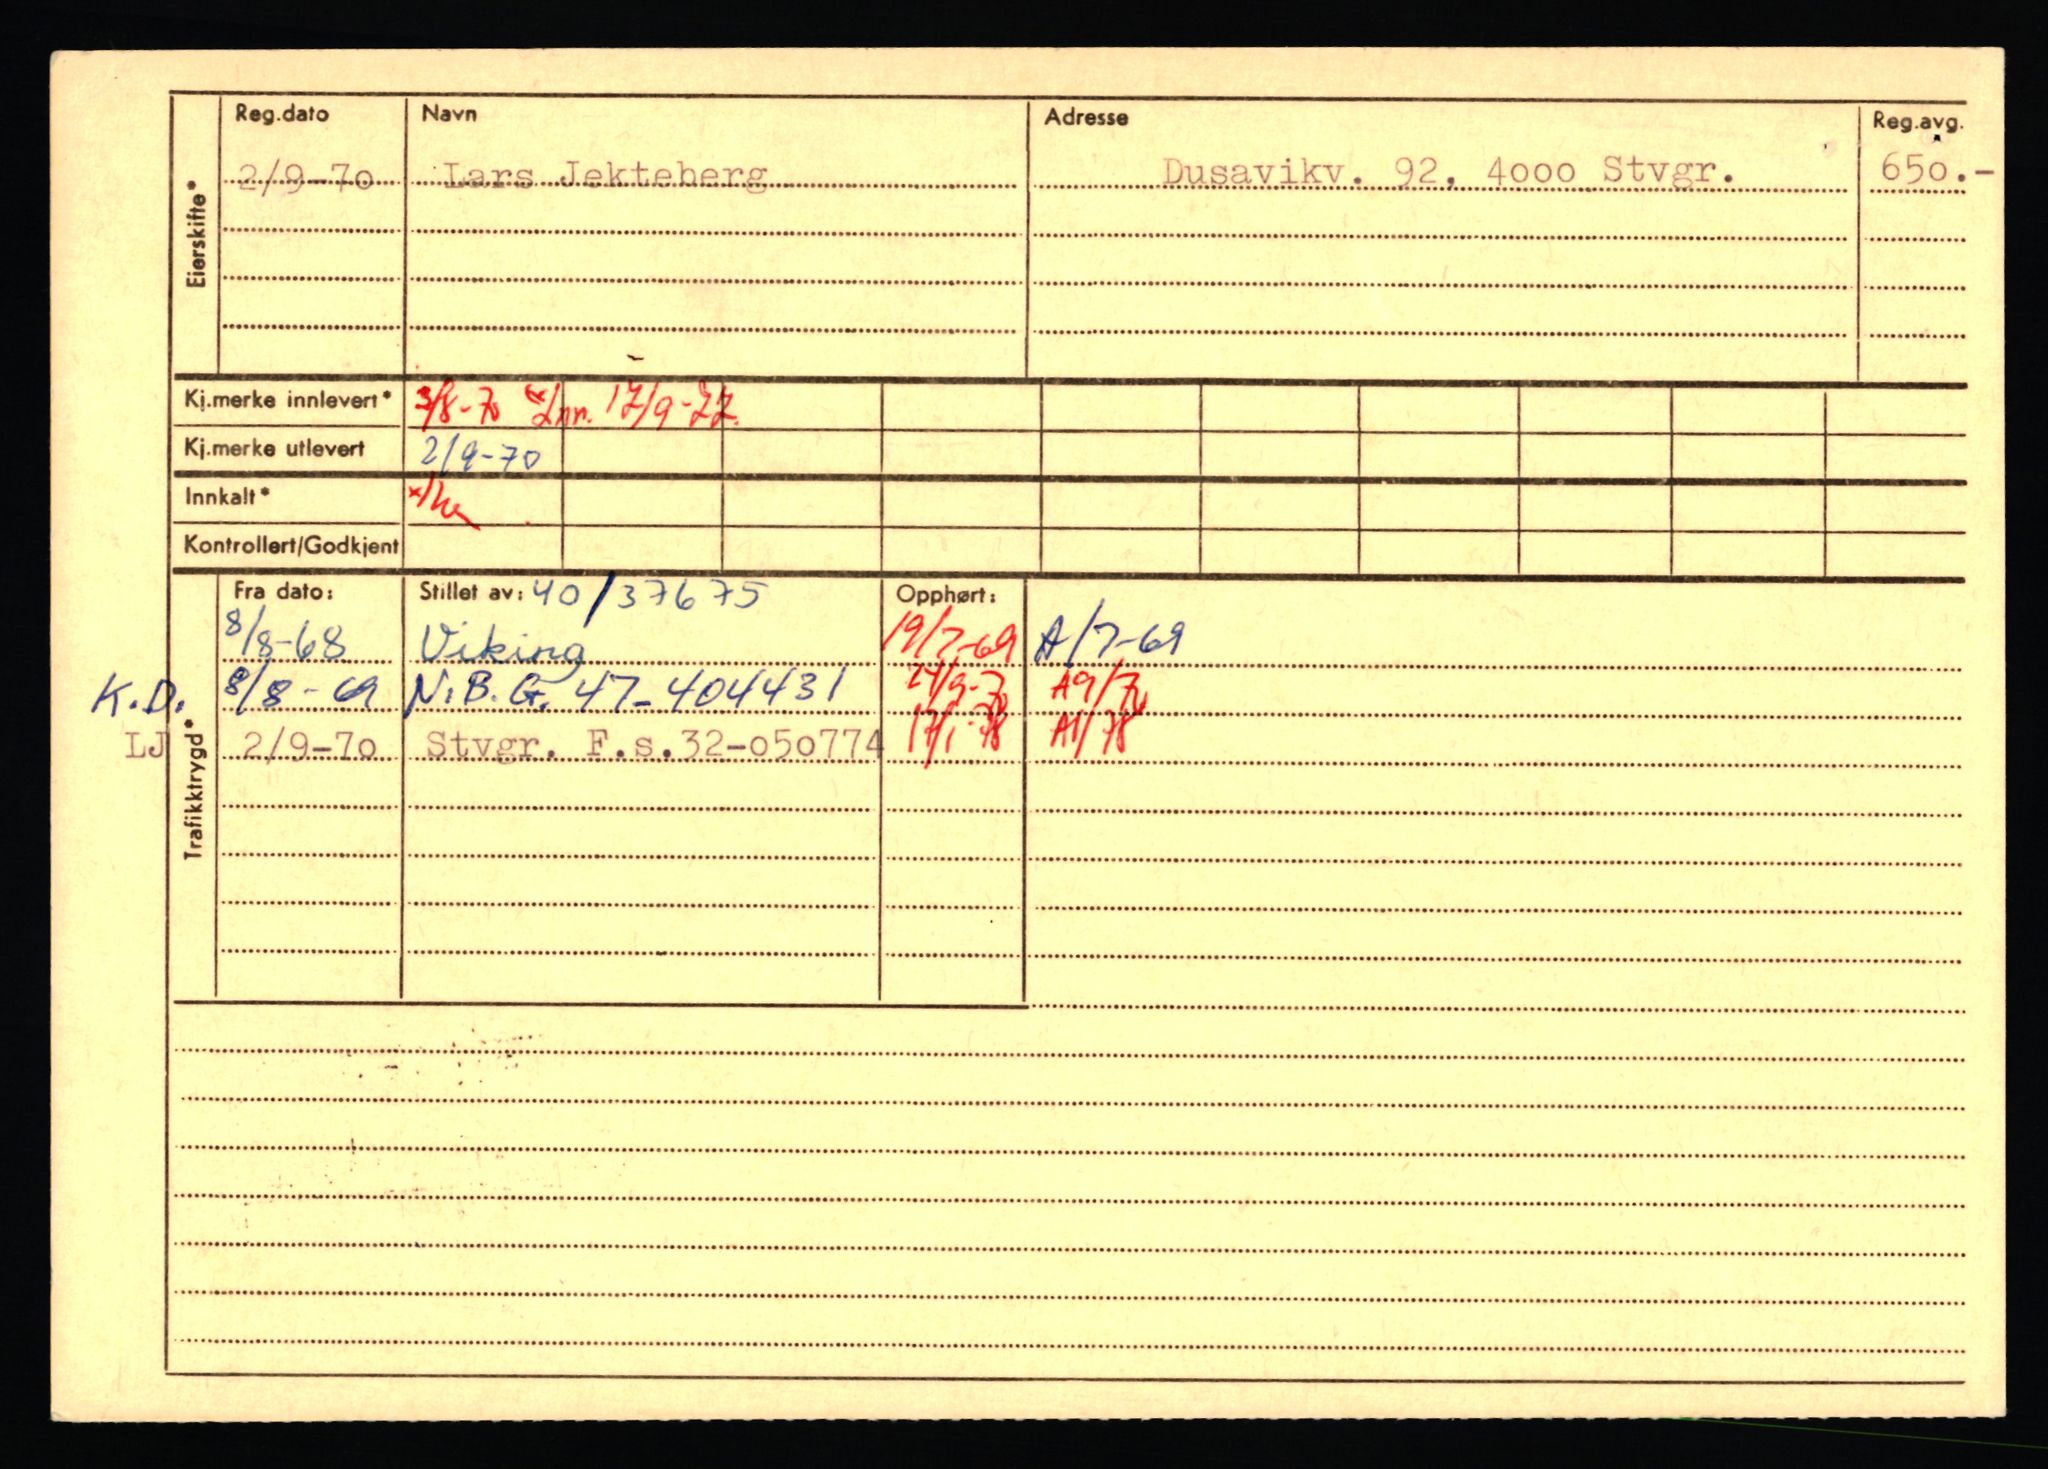 Reg.dato Navn Adresse Reg.avg.
Eierskifte*
2/9-70 Lars Jekteberg Dusavikv. 92, 4000 Stvgr. 650.-
Kj.merke innlevert* 3/8-70 *Inn. 17/9-77.
Kj.merke utlevert 2/9-70
Innkalt*
Kontrollert/Godkjent
Trafikktrygd*
Fra dato: Stillet av: 40/37675 Opphørt:
8/8-68 Viking 19/7-69 A/7-69
K.D. 8/8-69 N.B.G. 47-404431 A9/70
LJ 2/9-70 Stvgr. F.s.32-050774 17/1-78 A1/78